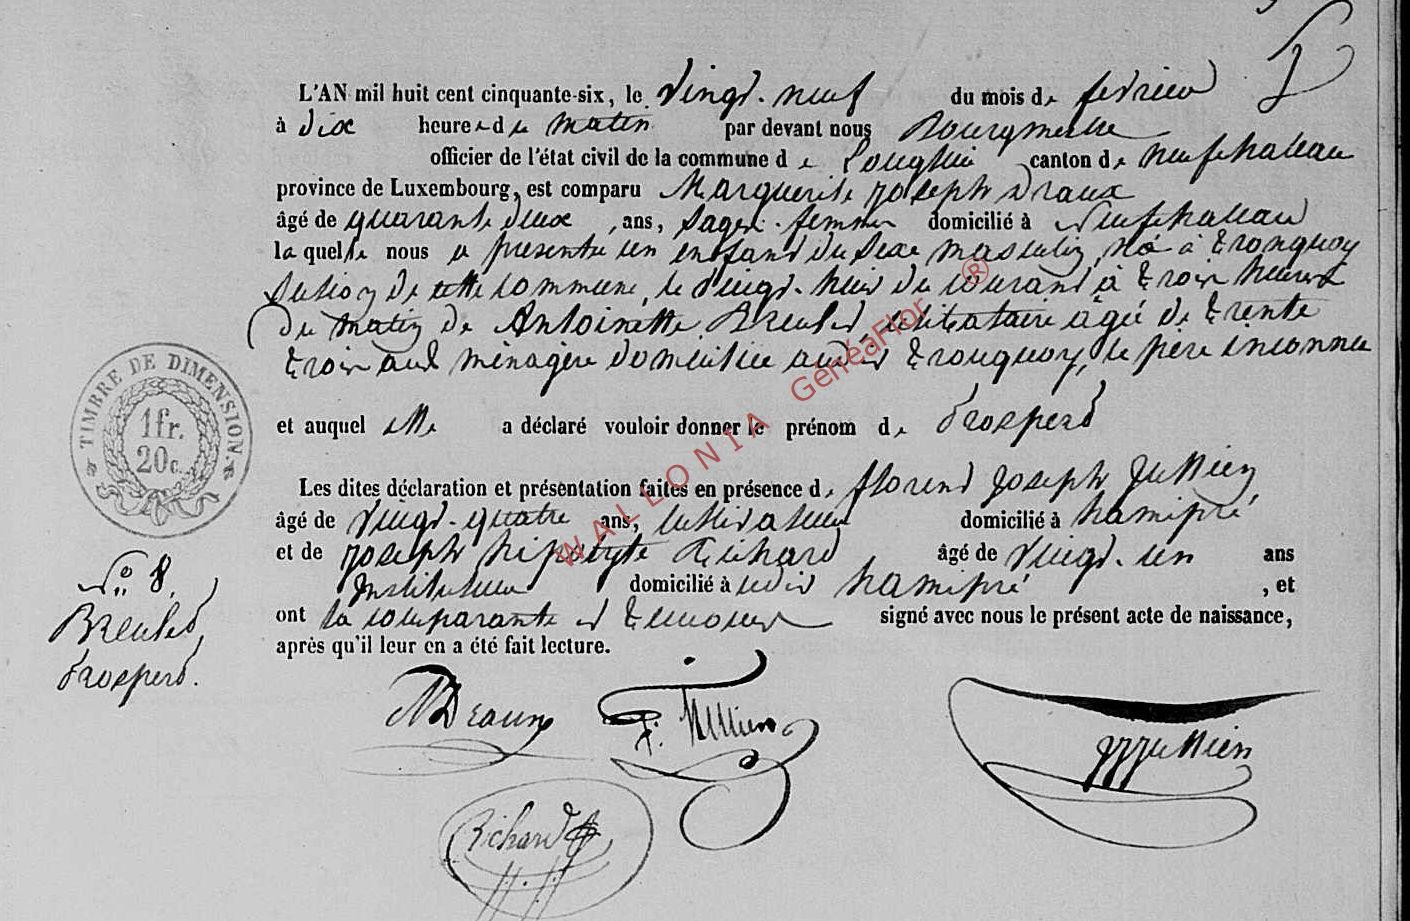 L'AN mil huit cent cinquante-six, le vingt-neuf du mois de fevrier
à dix heures du matin par devant nous Bourgmestre
officier de l'état civil de la commune de Longlier canton de neufchateau
province de Luxembourg, est comparu Marguerite joseph Draux
âgé de quarante deux ans, sage-femme domicilié à neufchateau
laquelle nous a présenté un enfant du sexe masculin né à tronquoy
section de cette commune, le vingt-huit du courant à trois heures
du matin de Antoinette Breulet, celibataire âgée de trente
trois ans ménagère domiciliée audit tronquoy, le père inconnu
et auquel elle a déclaré vouloir donner le prénom de Prosper
Les dites déclaration et présentation faites en présence de florent joseph
âgé de vingt-quatre ans, cultivateur domicilié à hamipré
et de joseph hipolyte Richard âgé de vingt-un ans
Instituteur domicilié à udit hamipré, et
ont la comparante et temoins signé avec nous le présent acte de naissance,
après qu'il leur en a été fait lecture.
TIMBRE DE DIMENSION.
1 fr.
20 c.
N° 8.
Breulet,
Prosper.
Richard
WALLONIA GénéaFlor ®